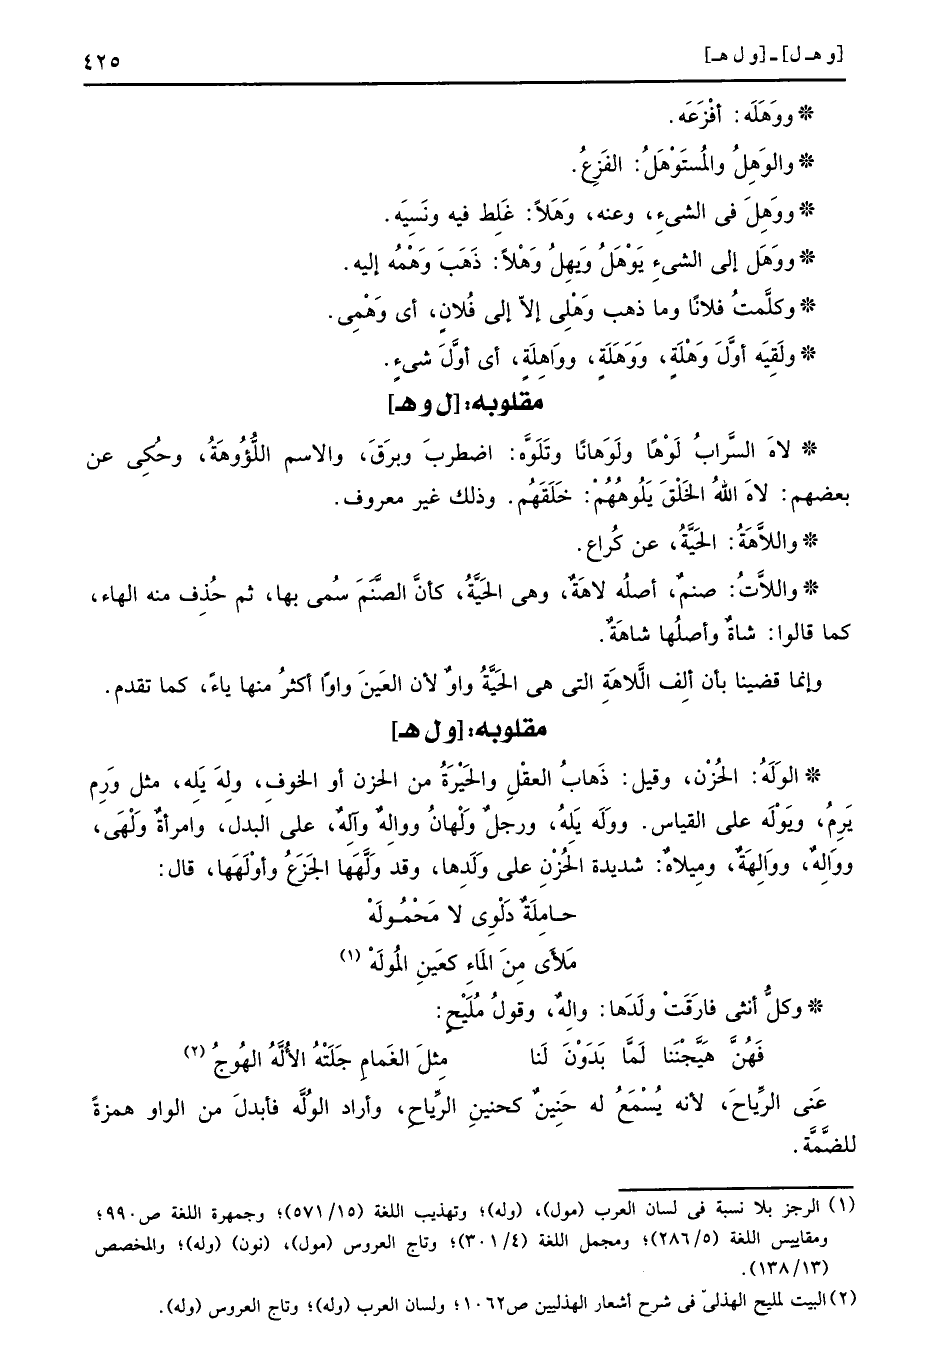 [و هـ ل] ـ [و ل هـ] ٤٢٥
* ووَهَلَه: أفْزَعَه.
* والوَهِلُ والمُستَوْهَلُ: الفَزِعُ.
* ووَهِلَ فى الشىءِ، وعنه، وَهَلاً: غَلِط فيه ونَسِيَه.
* ووَهَل إلى الشىءِ يَوْهَلُ وَيهِلُ وَهْلاً: ذَهَبَ وَهْمُه إليه.
* وكلَّمتُ فلانًا وما ذهب وَهْلِى إلاّ إلى فُلانٍ، أى وَهْمِى.
* ولَقِيَه أوَّلَ وَهْلَةٍ، وَوَهَلَةٍ، ووَاهِلَةٍ، أى أوَّلَ شىءٍ.
مقلوبه: [ل و هـ]
* لاهَ السَّرابُ لَوْهًا ولَوَهانًا وتَلَوَّه: اضطربَ وبرَقَ، والاسم اللُّؤُوهَةُ، وحُكِى عن
بعضهم: لاهَ اللهُ الخَلْقَ يَلُوهُهُمْ: خَلَقَهُم. وذلك غير معروف.
* واللاَّهَةُ: الحَيَّةُ، عن كُراع.
* واللاَّتُ: صنمٌ، أصلُه لاهَةٌ، وهى الحَيَّةُ، كأنَّ الصنَّمَ سُمى بها، ثم حُذِف منه الهاء،
كما قالوا: شاةٌ وأصلُها شاهَةٌ.
وإنما قضينا بأن ألِف الَّلاهَةِ التى هى الحَيَّةُ واوٌ لأن العَينَ واوًا أكثرُ منها ياءً، كما تقدم.
مقلوبه: [و ل هـ]
* الوَلَهُ: الحُزْن، وقيل: ذَهابُ العقْلِ والحَيْرَةُ من الحزن أو الخوفِ، ولِهَ يَلِه، مثل ورَِم
يَرِمُ، ويَوْلَه على القياس. ووَلَه يَلِهُ، ورجلٌ ولْهانُ ووالِهٌ وآلِهٌ، على البدل، وامرأةٌ ولْهَى،
ووَالِهٌ، ووَالِهَةٌ، ومِيلاهٌ: شديدة الحُزْنِ على ولَدِها، وقد ولَّهَها الجَزَعُ وأوْلَهَها، قال:
حـامِلَةٌ دَلْوِى لا مَحْمُـولَهْ
مَلأَى مِنَ المَاءِ كعَينِ المُولَهْ (١)
* وكلُّ أنثى فارَقَتْ ولَدَها: والِهٌ، وقولُ مُلَيْحٍ:
فَهُنَّ هَيَّجْنَنا لَمَّا بَدَوْنَ لَنا مِثلَ الغَمامِ جَلَتْهُ الأُلَّهُ الهُوجُ (٢)
عَنَى الرِّياحَ، لأنه يُسْمَعُ له حَنِينٌ كحنينِ الرِّياحِ، وأراد الوُلَّه فأبدلَ من الواو همزةً
للضمَّة.
(١) الرجز بلا نسبة فى لسان العرب (مول)، (وله)؛ وتهذيب اللغة (١٥/ ٥٧١)؛ وجمهرة اللغة ص٩٩٠؛
ومقاييس اللغة (٥/ ٢٨٦)؛ ومجمل اللغة (٤/ ٣٠١)؛ وتاج العروس (مول)، (نون) (وله)؛ والمخصص
(١٣/ ١٣٨).
(٢) البيت لمليح الهذلىّ فى شرح أشعار الهذليين ص١٠٦٢؛ ولسان العرب (وله)؛ وتاج العروس (وله).